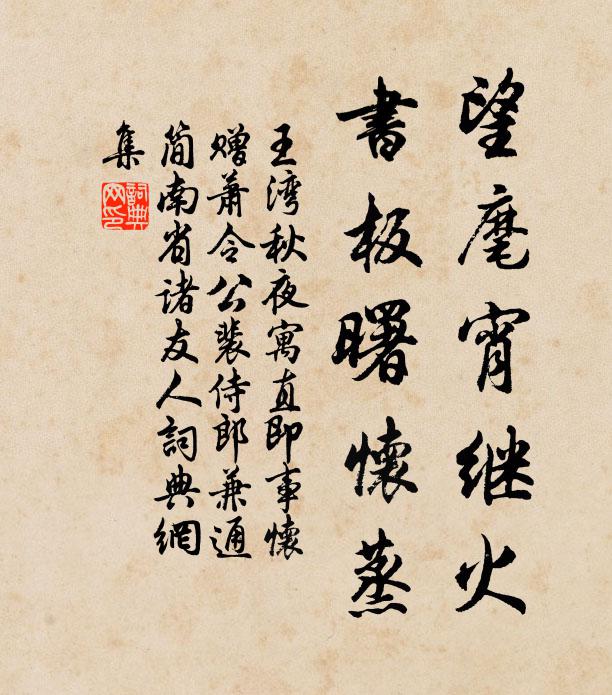 望麾宵继火
書板曙懷蒸
王湾秋夜寓直即事懷
赠萧令公裴侍郎兼通
简南省诸友人詞典網
集
詞典
网印